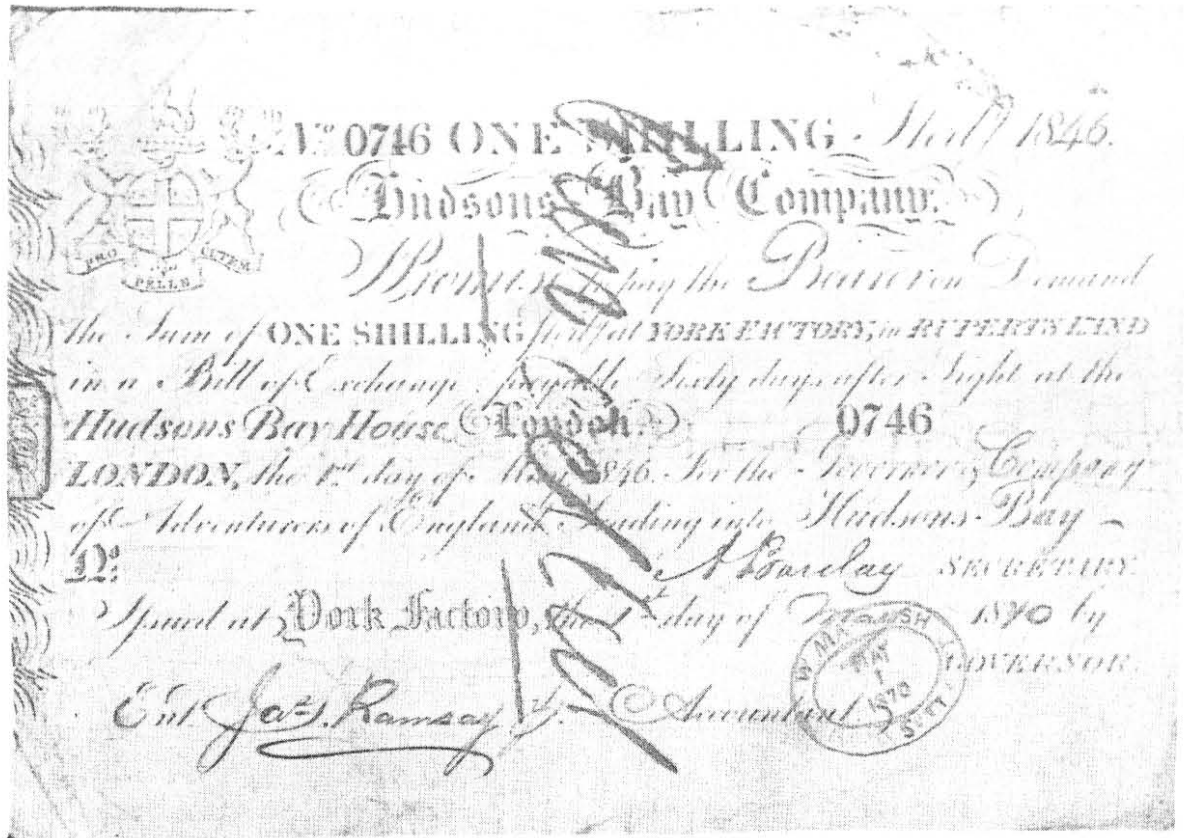 No 0746 ONE SHILLING 1846.
Hudsons Bay Company.
PRO PELLE CUTEM
Promise to pay the Bearer on Demand
the Sum of ONE SHILLING at YORK FACTORY, in RUPERTS LAND
in a Bill of Exchange payable Sixty days after Sight at the
Hudsons Bay House London. 0746
LONDON, the 1st day of 1846. For the Governor & Company
of Adventurers of England Trading into Hudsons-Bay
No. A Barclay SECRETARY.
Issued at York Factory, the 1st day of 1870 by
GOVERNOR.
Ent. Jas. Ramsay Accountant
MAY 1 1870